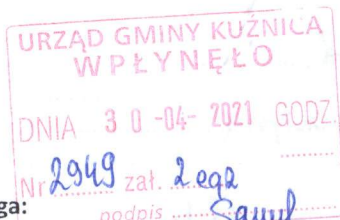 URZĄD GMINY KUŹNICA
WPŁYNĘŁO
DNIA 30-04-2021 GODZ.
Nr 2949 zał. 2 egz
podpis
ga: